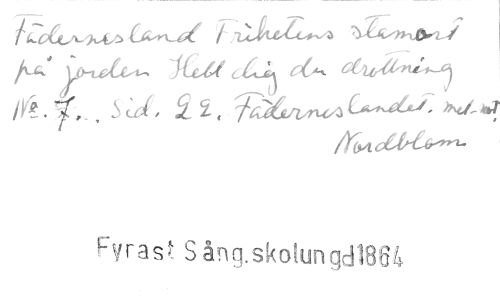 Fädernesland Frihetens stamort
på jorden Hell dig du drottning
No. 7... Sid. 22. Fäderneslandet. met. not.
Nordblom
Fyrast Sång.skolungd1864